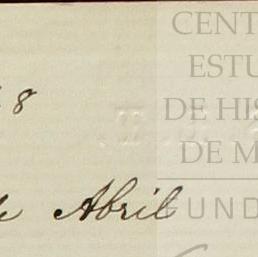 CENT
ESTU
8
DE HIS
DE M
Abril
FUND